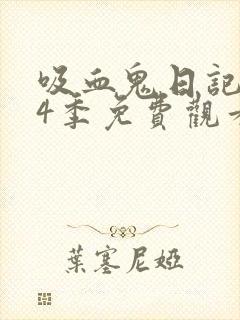 吸血鬼日記
4季免費觀
葉塞尼婭